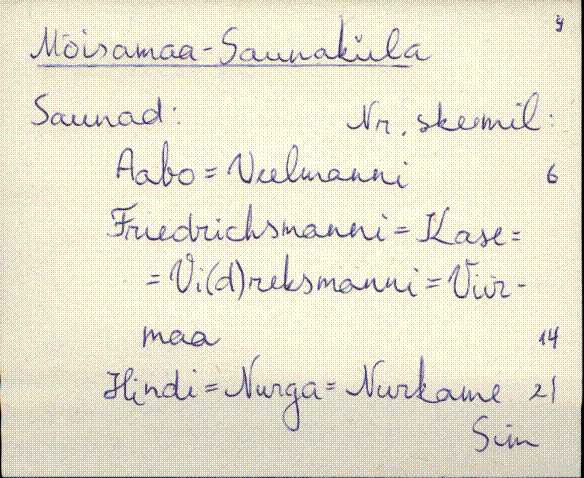 4
Mõisamaa-Saunaküla
Saunad: Nr. skemil:
Aabo = Veelmanni 6
Friedrichsmanni = Kase =
= Vi(d)reksmanni = Viir-
maa 14
Hindi = Nurga = Nurkame 21
Sim